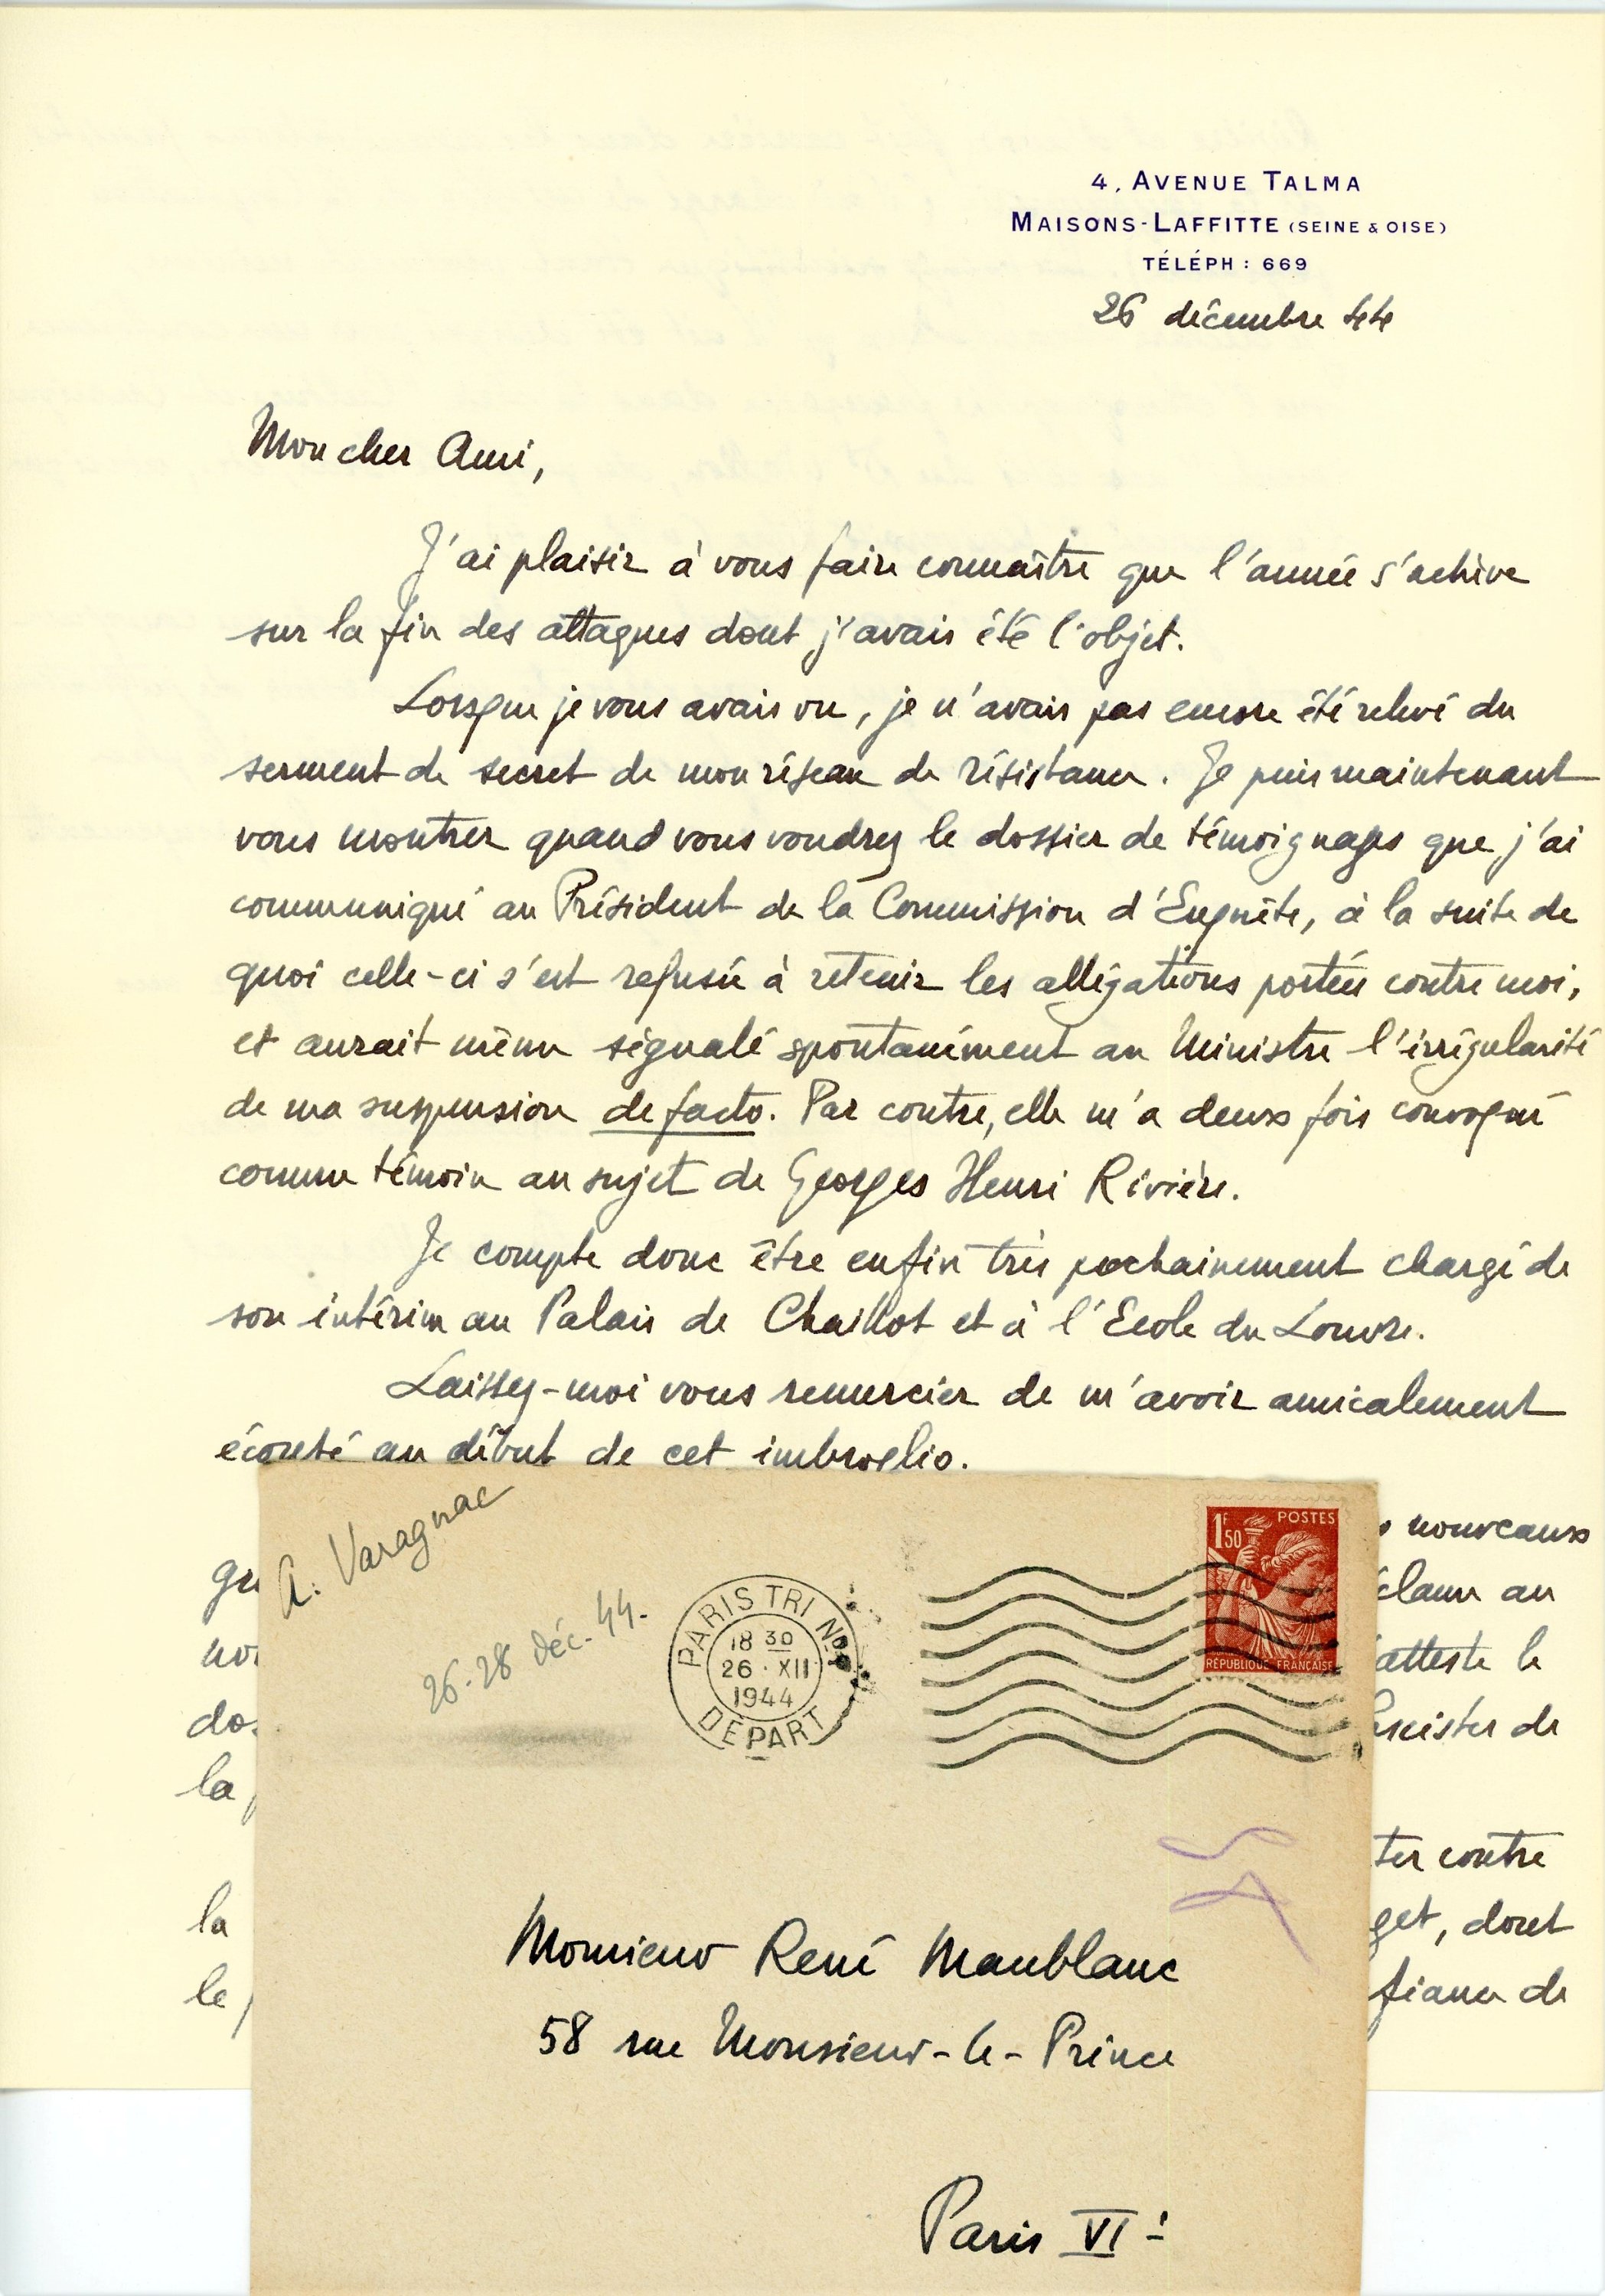 4, AVENUE TALMA
MAISONS-LAFFITTE (SEINE & OISE)
TÉLÉPH : 669
26 décembre 44
Mon cher Ami,
J'ai plaisir à vous faire connaître que l'année s'achève
sur la fin des attaques dont j'avais été l'objet.
Lorsque je vous avais vu, je n'avais pas encore été relevé du
serment de secret de mon réseau de résistance. Je puis maintenant
vous montrer quand vous voudrez le dossier de témoignages que j'ai
communiqué au Président de la Commission d'Enquête, à la suite de
quoi celle-ci s'est refusée à retenir les allégations portées contre moi,
et aurait même signalé spontanément au Ministre l'irrégularité
de ma suspension de facto. Par contre, elle m'a deux fois convoqué
comme témoin au sujet de Georges Henri Rivière.
Je compte donc être enfin très prochainement chargé de
son intérim au Palais de Chaillot et à l'Ecole du Louvre.
Laissez-moi vous remercier de m'avoir amicalement
écouté au début de cet imbroglio.
nouveaux
au
atteste le
de
la
ter contre
la
get, dont
le
fiance de
A. Varagnac
26-28 déc. 44.
PARIS TRI No
18 30
26 · XII
1944
DÉPART
1F50
POSTES
RÉPUBLIQUE FRANÇAISE
Monsieur René Maublanc
58 rue Monsieur-le-Prince
Paris VIe